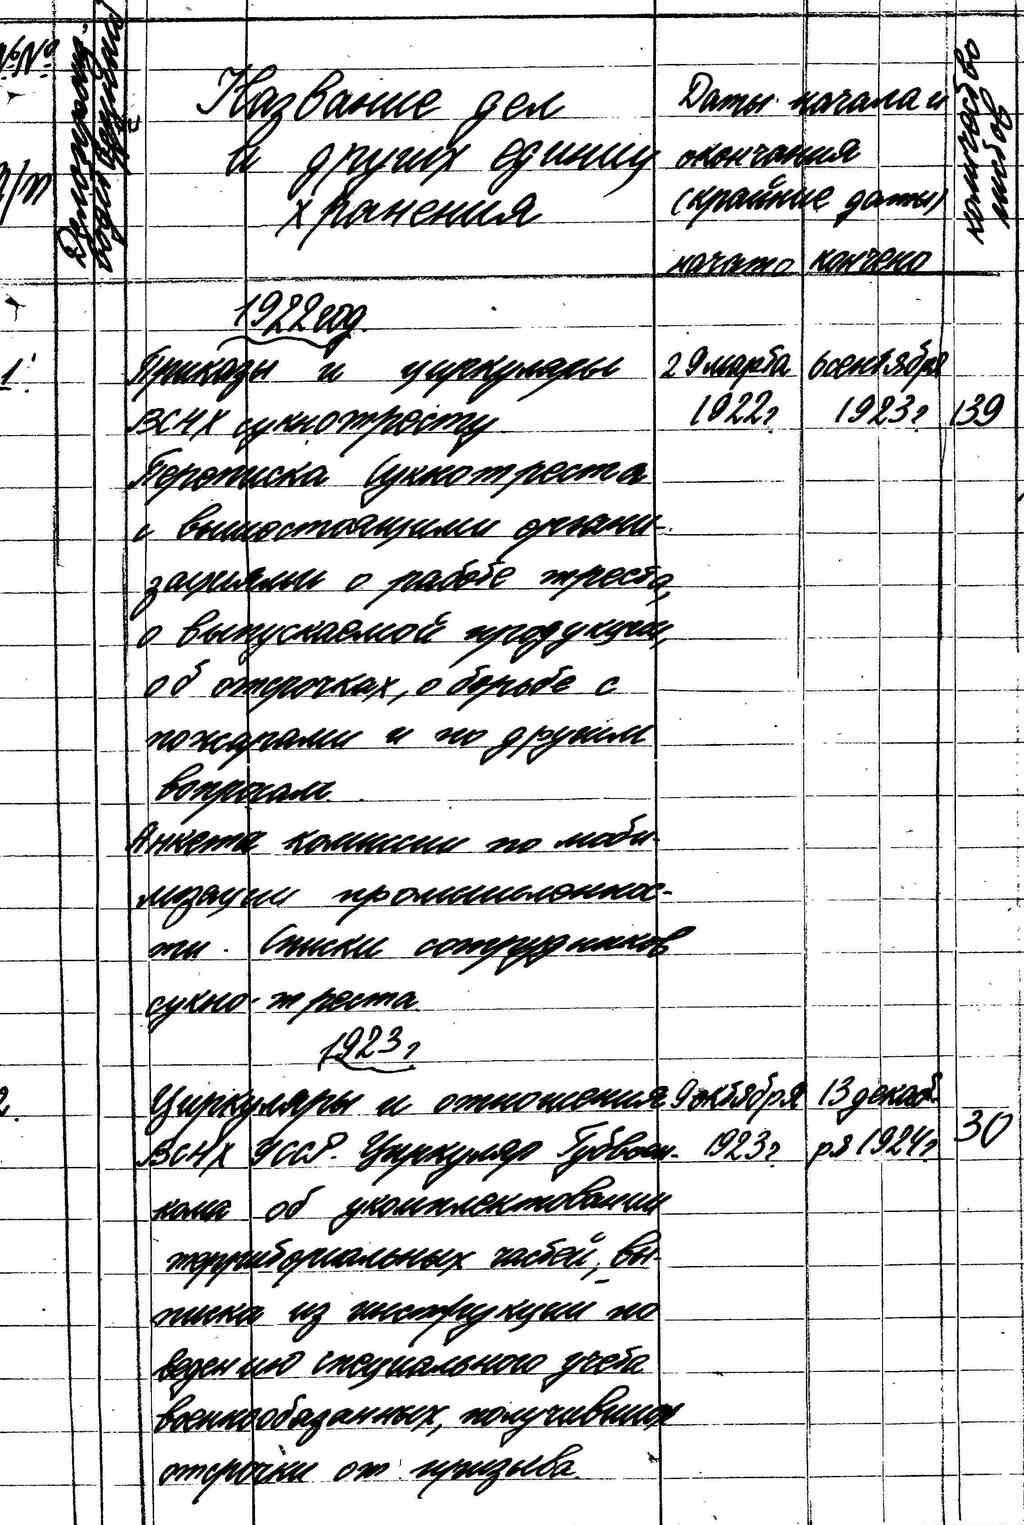 №№ п/п
Делопроизв.
водст. единица
Название дел
и других единиц
хранения
Даты начала и
окончания
(крайние даты)
начато кончено
количество
листов
1922 год.
1. Приказы и циркуляры 29 марта 6 сентября
ВСНХ сукнотресту 1922 г. 1923 г. 139
Переписка Сукнотреста
с вышестоящими органи-
зациями о работе треста,
о выпускаемой продукции,
об отсрочках, о борьбе с
пожарами и по другим
вопросам.
Анкета комиссии по моби-
лизации промышленнос-
ти. Списки сотрудников
сукно-треста.
1923 г.
2. Циркуляры и отношения 9 октября 13 декаб-
ВСНХ УССР. Циркуляр Губвоен- 1923 г. ря 1924 г. 30
кома об укомплектовании
территориальных частей, вы-
писка из инструкции по
ведению специального учета
военнообязанных, получивших
отсрочки от призыва.